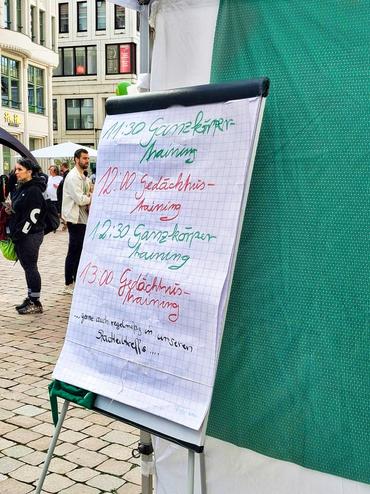 11:30 Ganzkörper-
training
12:00 Gedächtnis-
training
12:30 Ganzkörper-
training
13:00 Gedächtnis-
training
...gerne auch regelmäßig in unseren